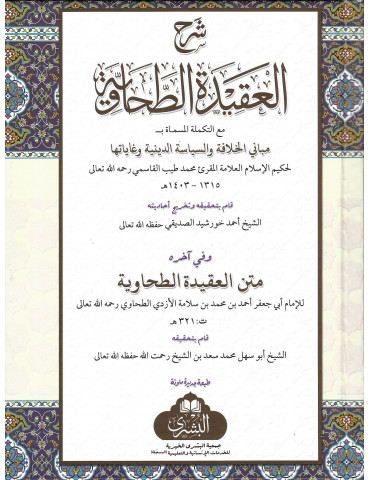 شرح
العقيدة الطحاوية
مع التكملة المسماة بـ
مباني الخلافة والسياسة الدينية وغاياتها
لحكيم الإسلام العلامة المقرئ محمد طيب القاسمي رحمه الله تعالى
١٣١٥ - ١٤٠٣هـ
قام بتحقيقه وتخريج أحاديثه
الشيخ أحمد خورشيد الصديقي حفظه الله تعالى
وفي آخره
متن العقيدة الطحاوية
للإمام أبي جعفر أحمد بن محمد بن سلامة الأزدي الطحاوي رحمه الله تعالى
ت: ٣٢١ هـ
قام بتحقيقه
الشيخ أبو سهل محمد سعد بن الشيخ رحمت الله حفظه الله تعالى
طبعة جديدة ملونة
البشرى
جمعية البشرى الخيرية
للخدمات الإنسانية والتعليمية